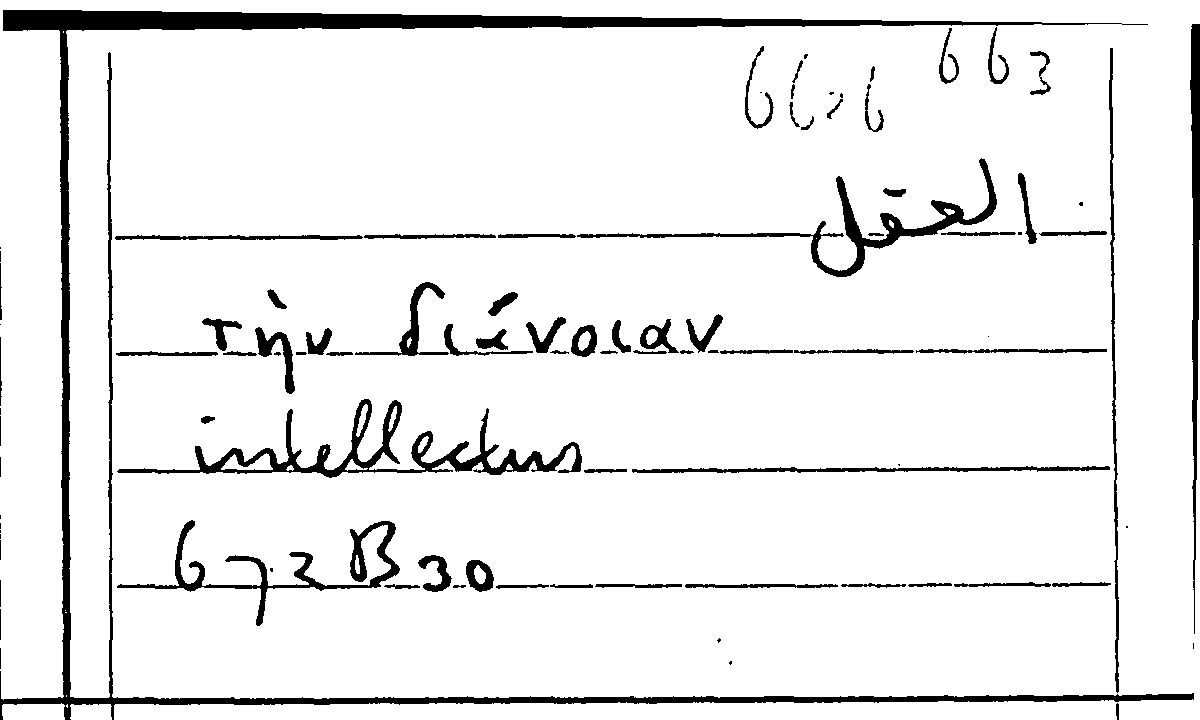 663
العقل
τὴν διάνοιαν
intellectus
672 B 30